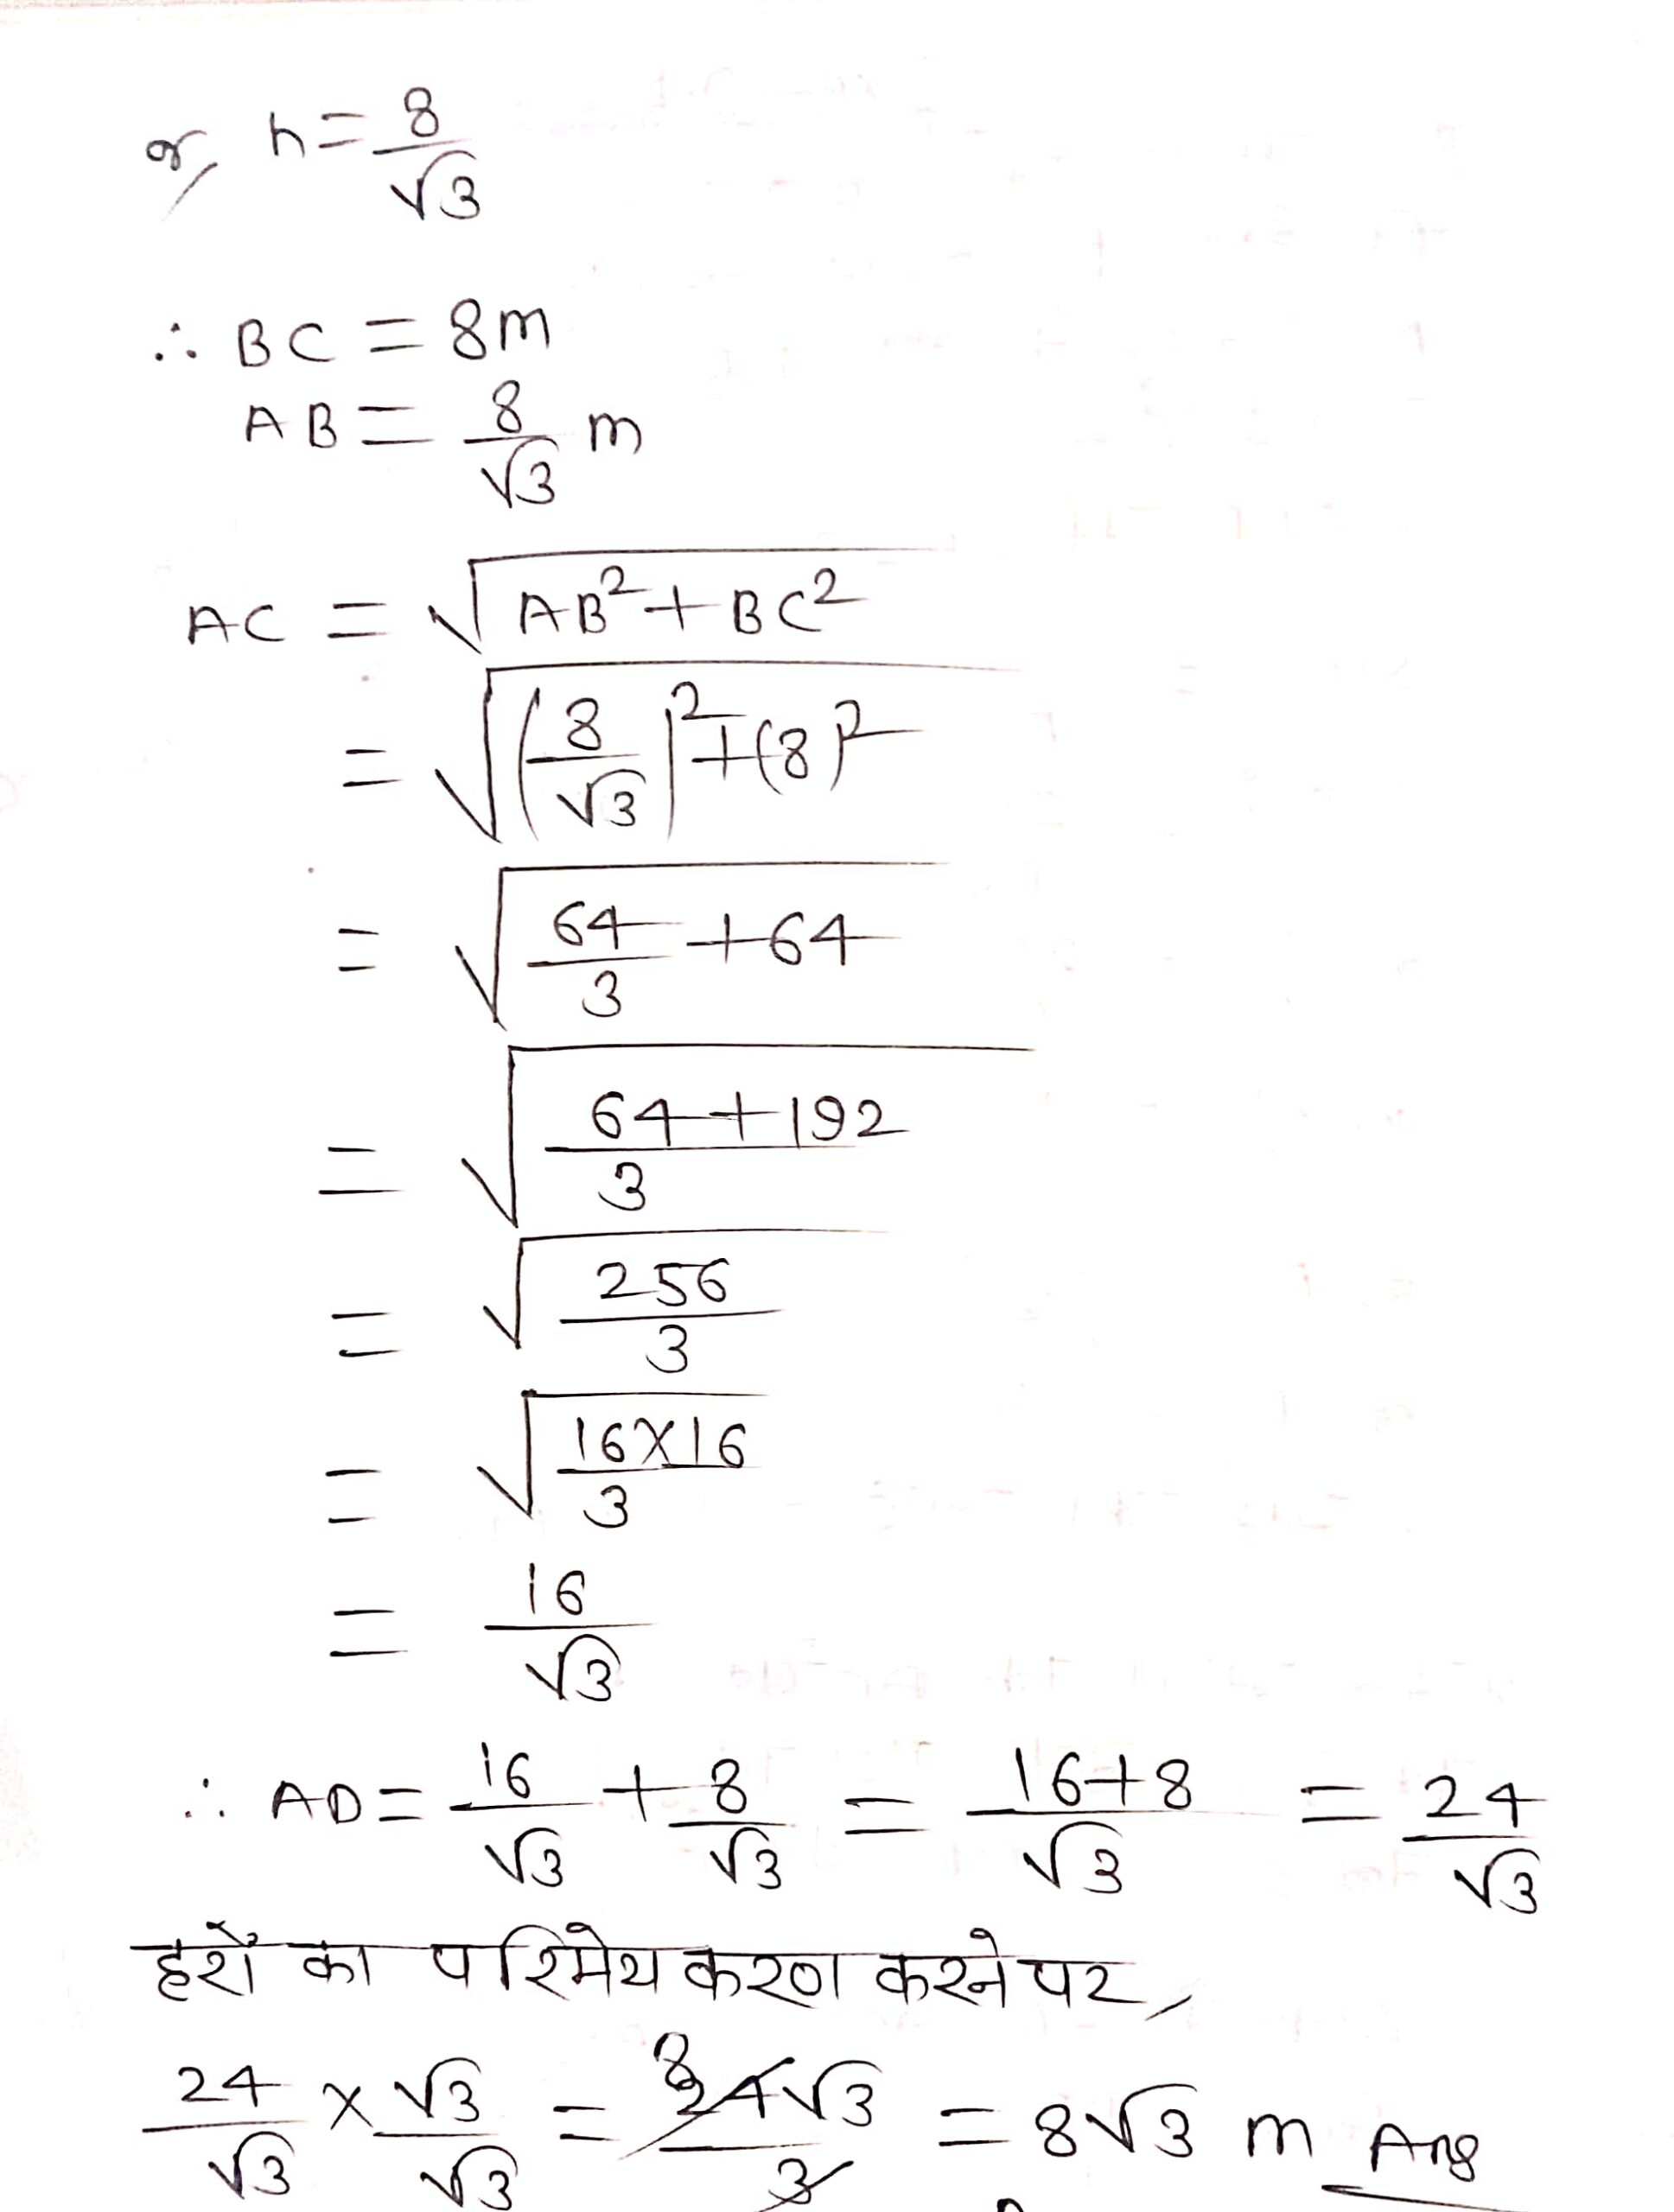 or, h = 8/√3
∴ BC = 8m
AB = 8/√3 m
AC = √(AB² + BC²)
= √((8/√3)² + (8)²)
= √(64/3 + 64)
= √((64 + 192)/3)
= √(256/3)
= √((16×16)/3)
= 16/√3
∴ AD = 16/√3 + 8/√3 = (16+8)/√3 = 24/√3
हरों का परिमेय करण करने पर,
24/√3 × √3/√3 = 24√3/3 = 8√3 m Ans